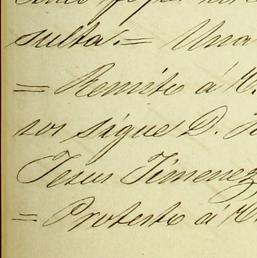 sulta.= Una
= Remito á V.
sor sigue D.
Jesus Jimenez
= Protesto á V.